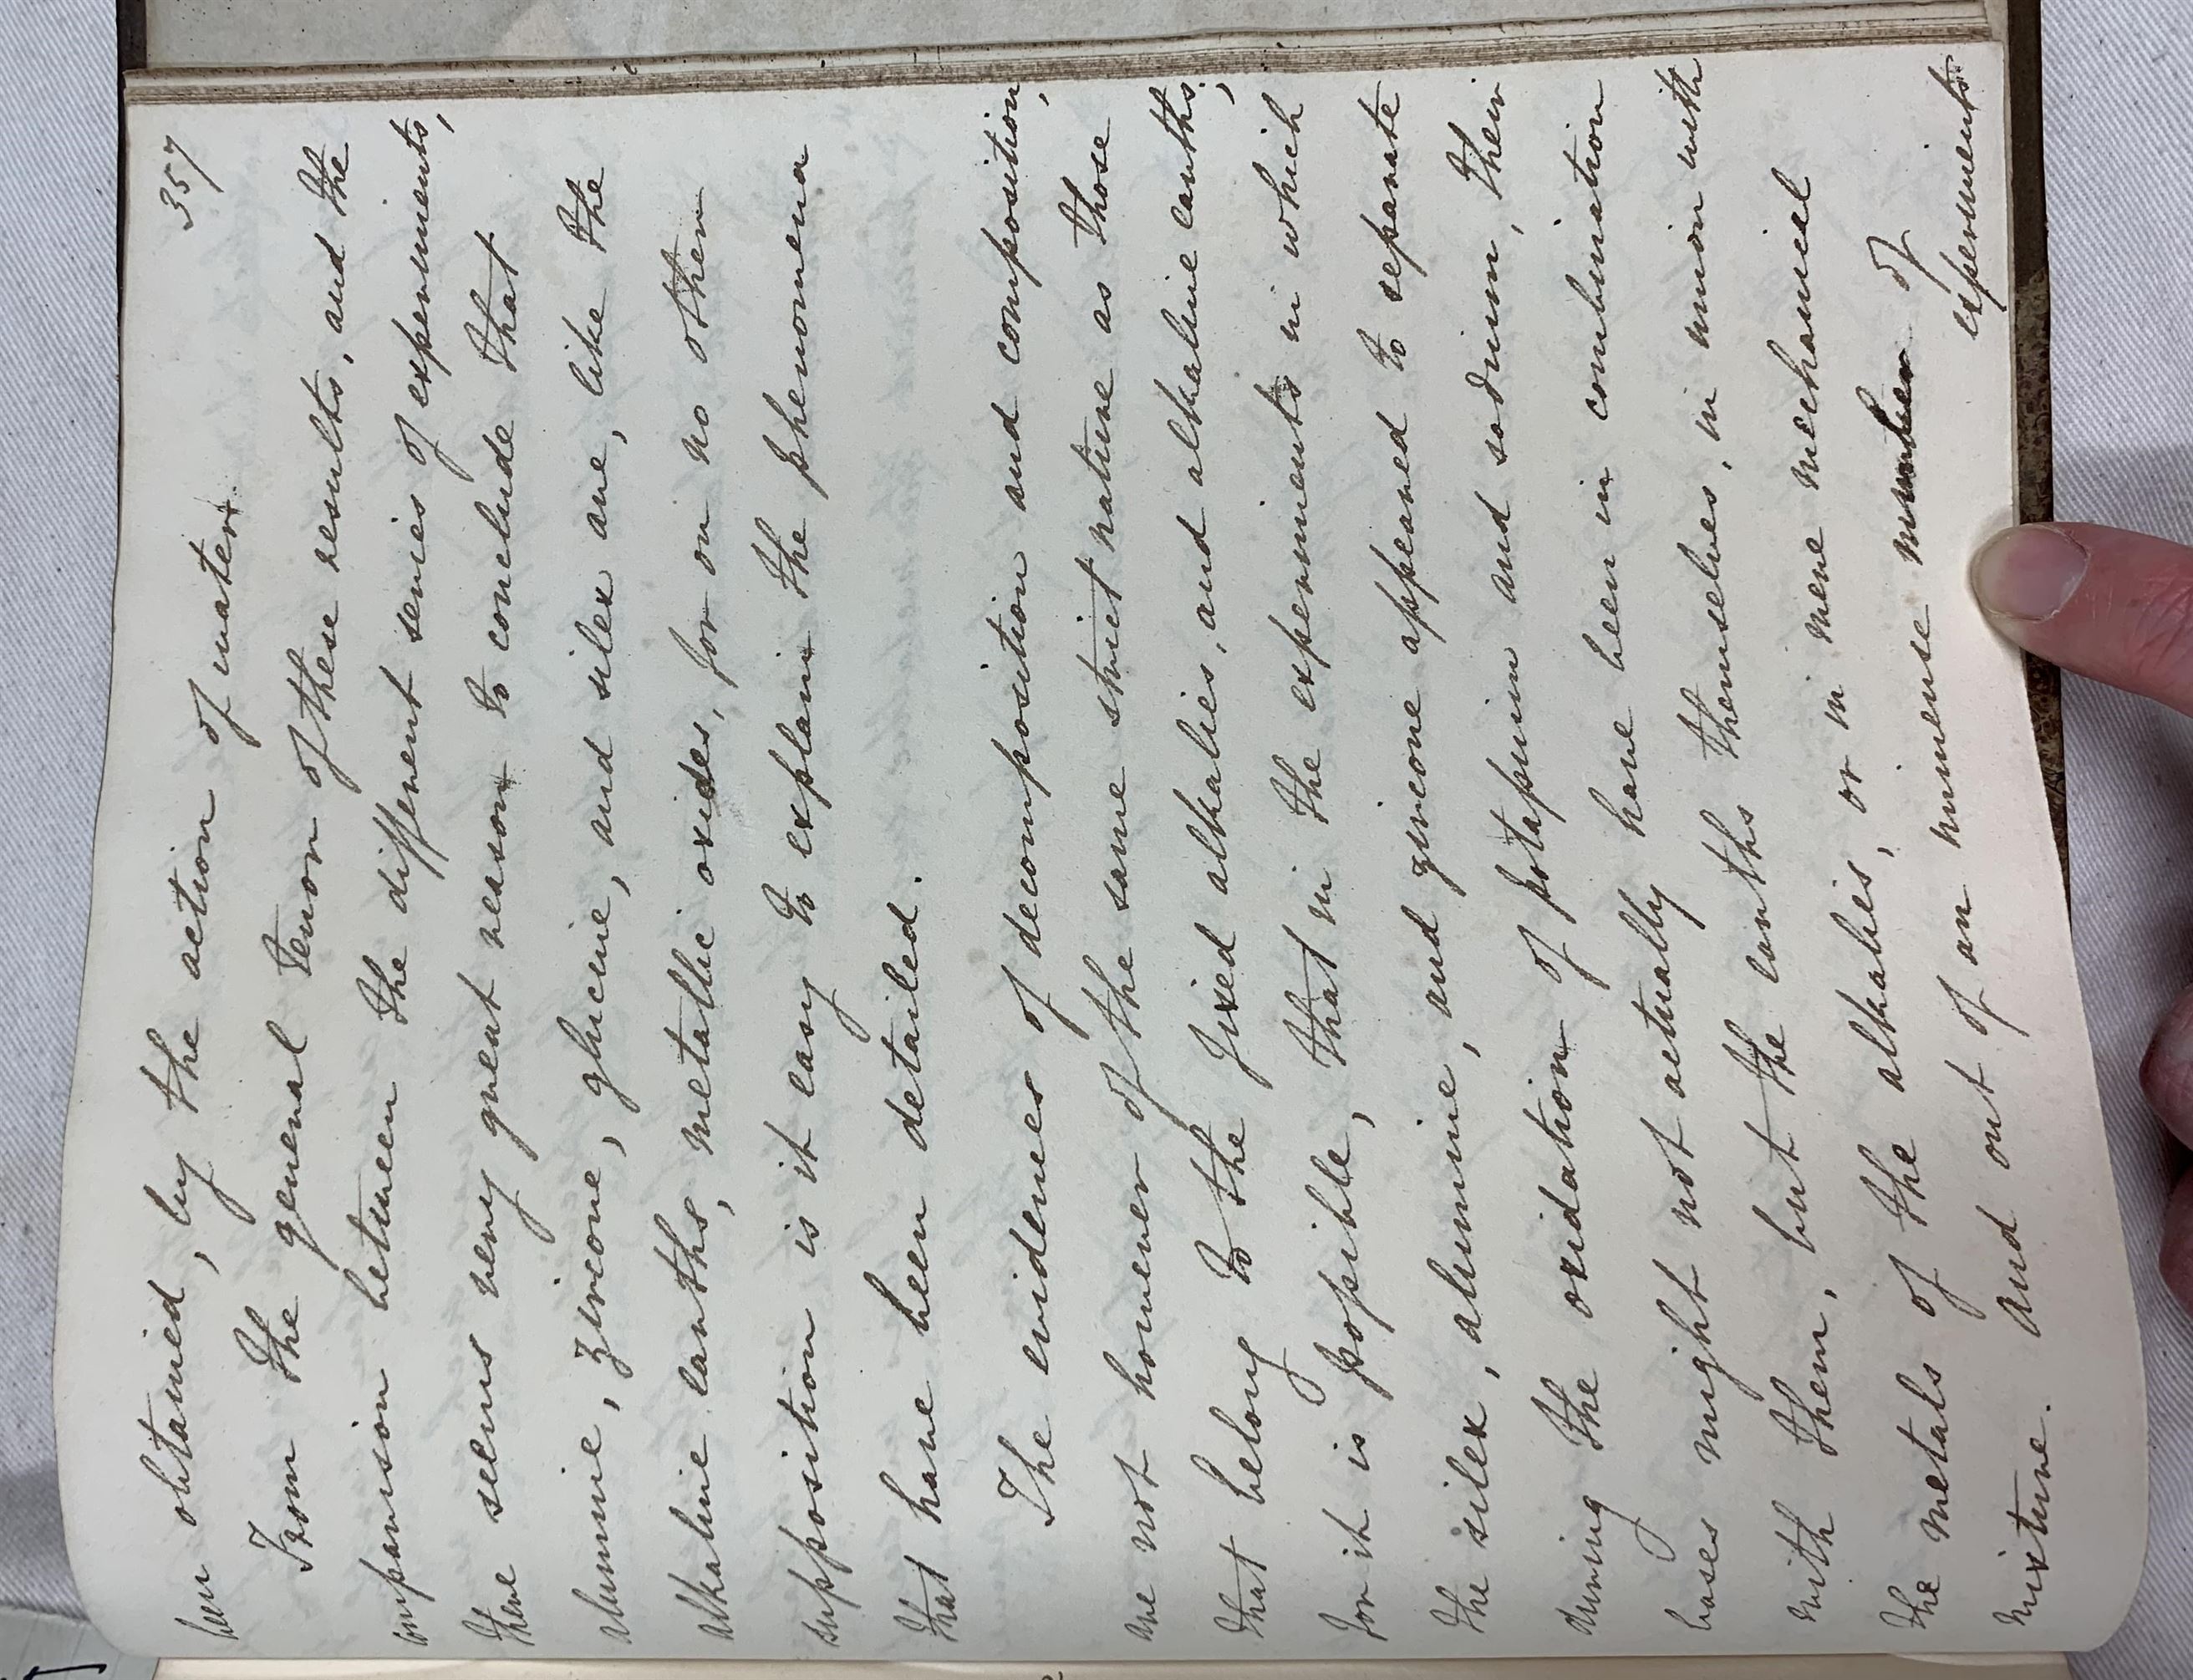 357
been obtained, by the action of water.
From the general tenor of these results, and the
comparison between the different series of experiments,
there seems very great reason to conclude that
alumine, zircone, glucine, and silex are, like the
alkaline earths, metallic oxides, for on no other
supposition is it easy to explain the phenomena
that have been detailed.
The evidences of decomposition and composition,
are not however of the same strict nature as those
that belong to the fixed alkalies, and alkaline earths;
for it is possible, that in the experiments in which
the silex, alumine, and zircone appeared to separate
during the oxidation of potassium and sodium, their
bases might not actually have been in combination
with them, but the earths themselves, in union with
the metals of the alkalies, or in mere mechanical
mixture. And out of an immense number of
experiments